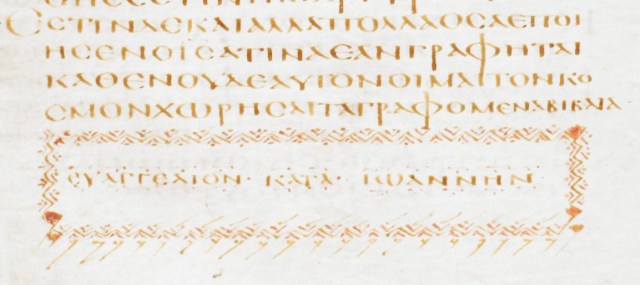 ΕϹΤΙΝΔΕΚΑΙΑΛΛΑΠΟΛΛΑΟϹΑΕΠΟΙ
ΗϹΕΝΟΙϹΑΤΙΝΑΕΑΝΓΡΑΦΗΤΑΙ
ΚΑΘΕΝΟΥΔΕΑΥΤΟΝΟΙΜΑΙΤΟΝΚΟ
ϹΜΟΝΧΩΡΗϹΑΙΤΑΓΡΑΦΟΜΕΝΑΒΙΒΛΙΑ
ΕΥΑΓΓΕΛΙΟΝ · ΚΑΤΑ · ΙΩΑΝΝΗΝ